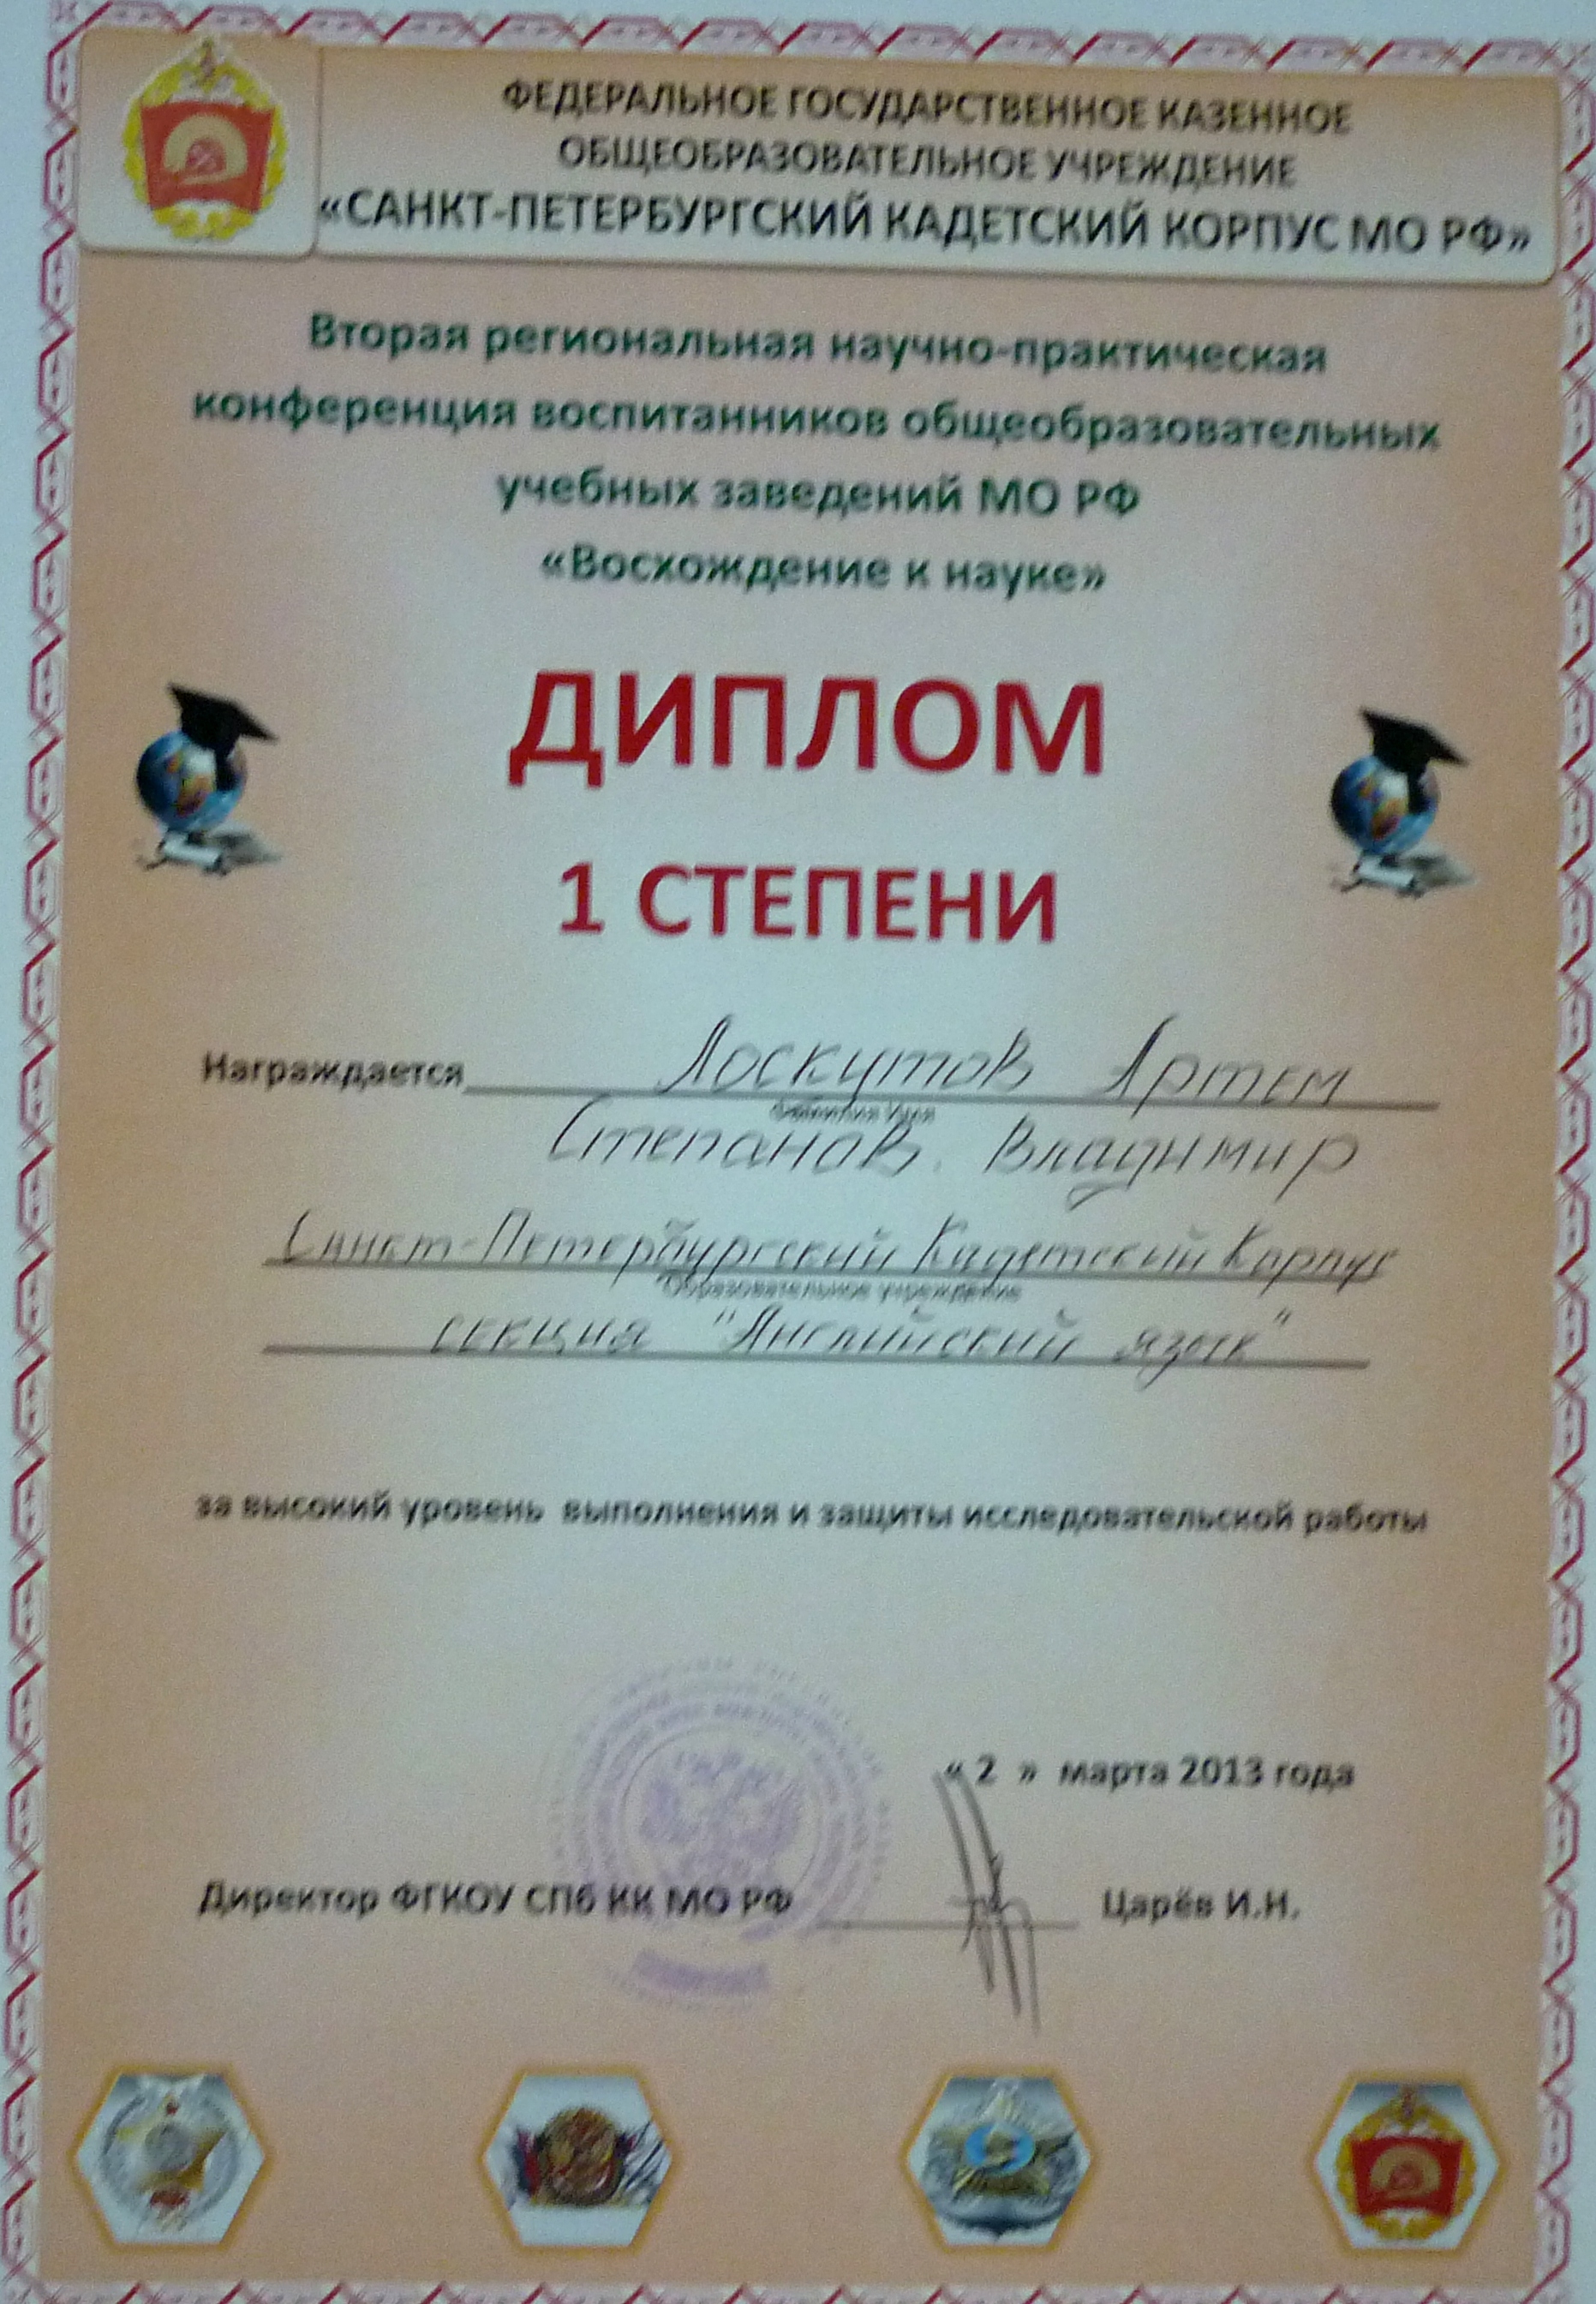 ФЕДЕРАЛЬНОЕ ГОСУДАРСТВЕННОЕ КАЗЕННОЕ
ОБЩЕОБРАЗОВАТЕЛЬНОЕ УЧРЕЖДЕНИЕ
«САНКТ-ПЕТЕРБУРГСКИЙ КАДЕТСКИЙ КОРПУС МО РФ»
Вторая региональная научно-практическая
конференция воспитанников общеобразовательных
учебных заведений МО РФ
«Восхождение к науке»
ДИПЛОМ
1 СТЕПЕНИ
Награждается Лоскутов Артем
Фамилия Имя
Степанов. Владимир
Санкт-Петербургский Кадетский Корпус
Образовательное учреждение
секция "Английский язык"
за высокий уровень выполнения и защиты исследовательской работы
« 2 » марта 2013 года
Директор ФГКОУ СПб КК МО РФ Царёв И.Н.